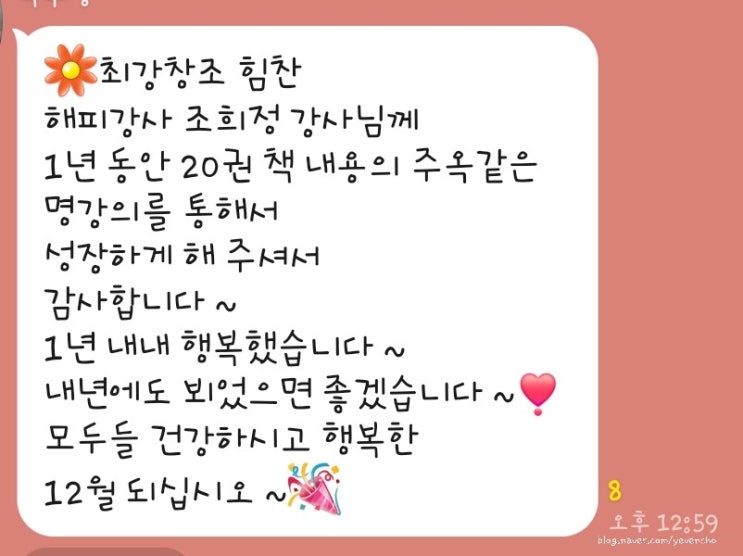 🌼최강창조 힘찬
해피강사 조희정 강사님께
1년 동안 20권 책 내용의 주옥같은
명강의를 통해서
성장하게 해 주셔서
감사합니다 ~
1년 내내 행복했습니다 ~
내년에도 뵈었으면 좋겠습니다 ~❣️
모두들 건강하시고 행복한
12월 되십시오 ~🎉
8
오후 12:59
blog.naver.com/yevencho